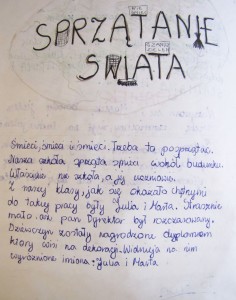 SPRZĄTANIE
ŚWIATA
Śmieci, śmieci i śmieci. Trzeba to posprzątać.
Nasza szkoła sprząta wokół budynku.
Właściwie nie szkoła, a jej uczniowie.
Z naszej klasy, jak się okazało chętnymi
do takiej pracy były Julia i Marta. Strasznie
mało, ani pan Dyrektor był rozczarowany.
Dziewczyny zostały nagrodzone dyplomem
który wisi na dekoracji. Widnieją na nim
wyróżnione imiona: Julia i Marta